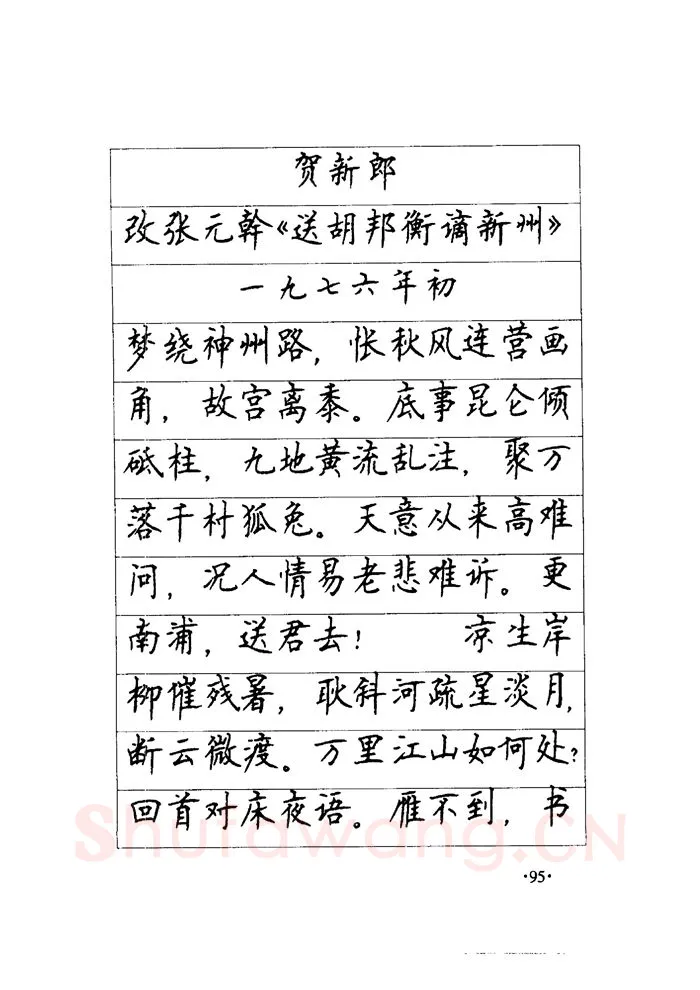 贺新郎
改张元幹《送胡邦衡谪新州》
一九七六年初
梦绕神州路，怅秋风连营画
角，故宫离黍。底事昆仑倾
砥柱，九地黄流乱注，聚万
落千村狐兔。天意从来高难
问，况人情易老悲难诉。更
南浦，送君去！ 凉生岸
柳催残暑，耿斜河疏星淡月，
断云微渡。万里江山如何处？
回首对床夜语。雁不到，书
Shufawang.CN
·95·